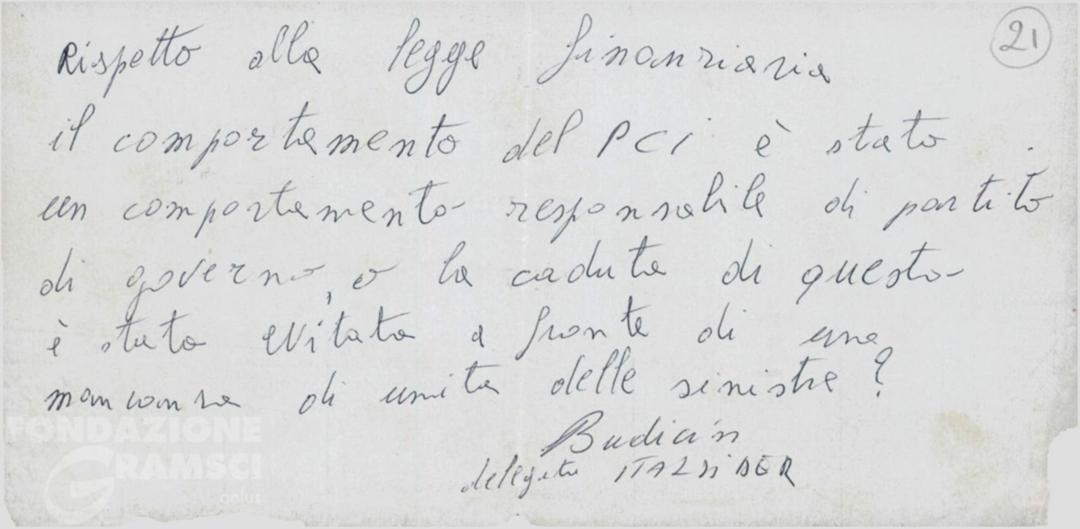 21
Rispetto alla legge finanziaria
il comportamento del PCI è stato
un comportamento responsabile di partito
di governo, o la caduta di questo
è stata evitata a fronte di una
mancanza di unità delle sinistre?
Budicin
delegato ITALSIDER
FONDAZIONE
GRAMSCI
onlus